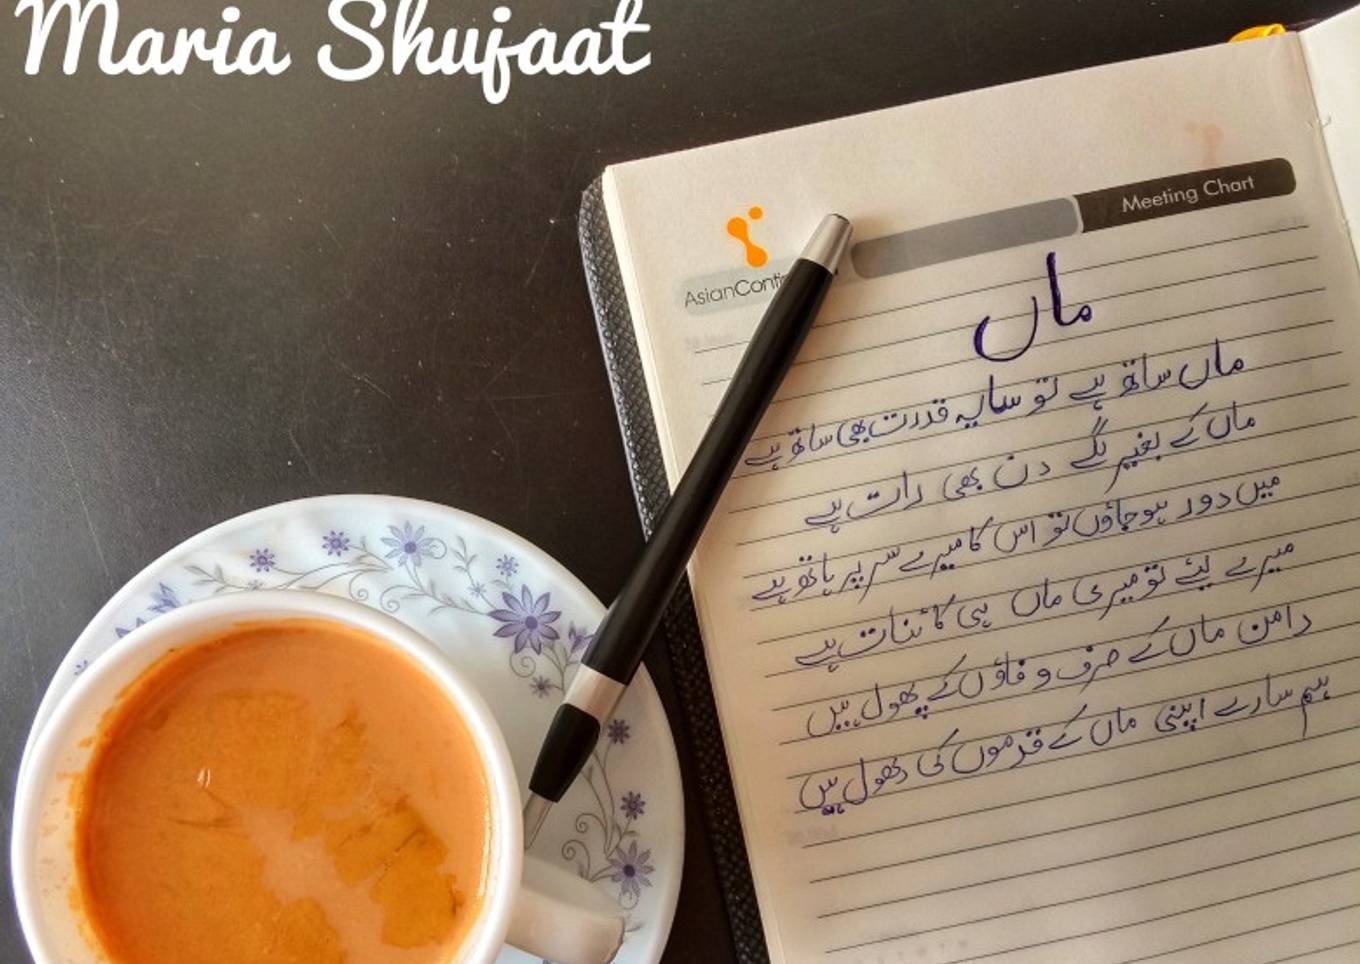 Maria Shujaat
Meeting Chart
AsianConti
ماں
ماں ساتھ ہے تو سایہ قدرت بھی ساتھ ہے
ماں کے بغیر لگے دن بھی رات ہے
میں دور ہو جاؤں تو اس کا میرے سر پر ہاتھ ہے
میرے لیئے تو میری ماں ہی کائنات ہے
دامن ماں کے صرف وفاؤں کے پھول ہیں
ہم سارے اپنی ماں کے قدموں کی دھول ہیں